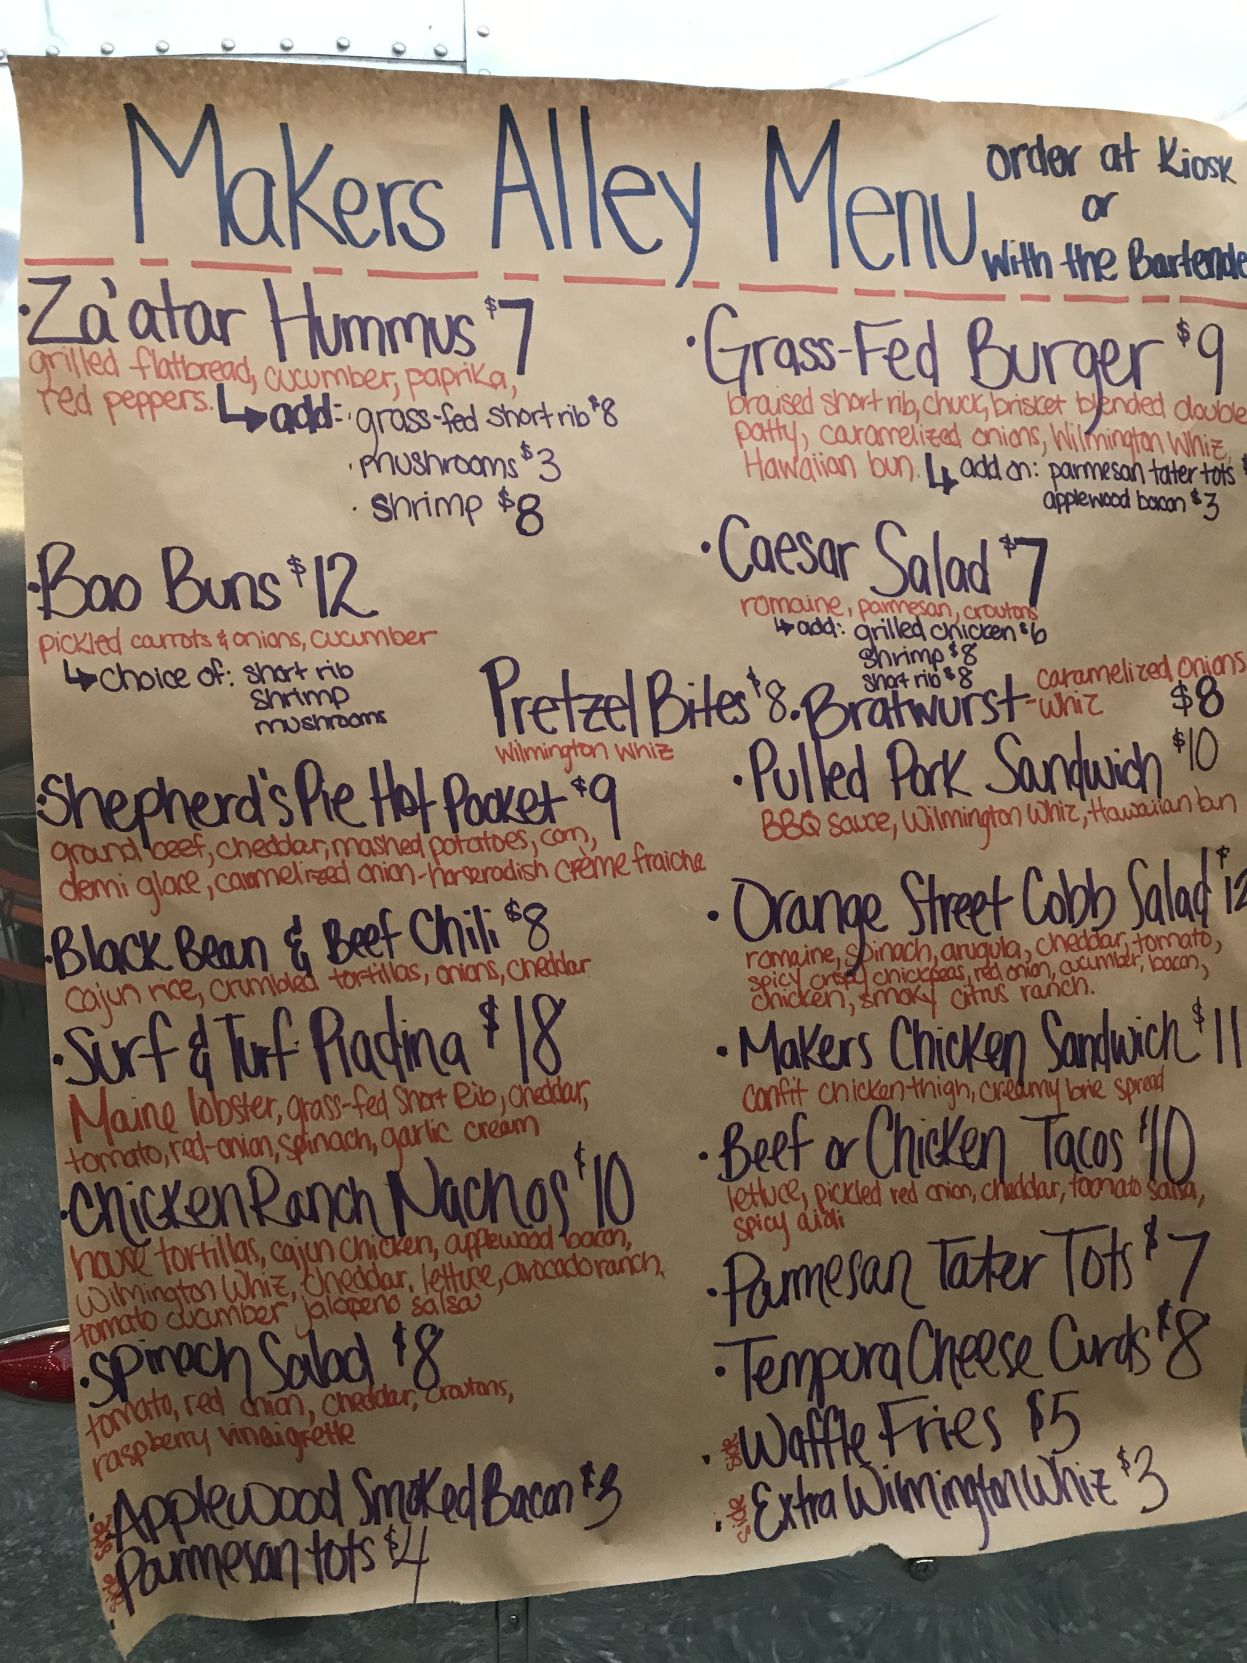 Makers Alley Menu
order at Kiosk
or
with the Bartende
·Za'atar Hummus $7
grilled flatbread, cucumber, paprika,
red peppers. add: · grass-fed short rib $8
· mushrooms $3
· shrimp $8
·Bao Buns $12
pickled carrots & onions, cucumber
choice of: short rib
shrimp
mushrooms
Pretzel Bites $8
Wilmington Whiz
·Shepherd's Pie Hot Pocket $9
ground beef, cheddar, mashed potatoes, corn,
demi glace, caramelized onion-horseradish crème fraiche
·Black Bean & Beef Chili $8
cajun rice, crumbled tortillas, onions, cheddar
·Surf & Turf Piadina $18
Maine lobster, grass-fed Short Rib, cheddar,
tomato, red-onion, spinach, garlic cream
·Chicken Ranch Nachos $10
house tortillas, cajun chicken, applewood bacon,
Wilmington Whiz, cheddar, lettuce, avocado ranch,
tomato cucumber jalapeno salsa
·Spinach Salad $8
tomato, red onion, cheddar, croutons,
raspberry vinaigrette
·side Applewood Smoked Bacon $3
·side Parmesan tots $4
·Grass-Fed Burger $9
braised short rib, chuck, brisket blended double
patty, caramelized onions, Wilmington Whiz,
Hawaiian bun. add on: parmesan tater tots $
applewood bacon $3
·Caesar Salad $7
romaine, parmesan, croutons
add: grilled chicken $6
shrimp $8
short rib $8
·Bratwurst - caramelized onions
whiz $8
·Pulled Pork Sandwich $10
BBQ sauce, Wilmington Whiz, Hawaiian bun
·Orange Street Cobb Salad $12
romaine, spinach, arugula, cheddar, tomato,
spicy crispy chickpeas, red onion, cucumber, bacon,
chicken, smoky citrus ranch.
·Makers Chicken Sandwich $11
confit chicken-thigh, creamy brie spread
·Beef or Chicken Tacos $10
lettuce, pickled red onion, cheddar, tomato salsa,
spicy aioli
·Parmesan Tater Tots $7
·Tempura Cheese Curds $8
·side Waffle Fries $5
·side Extra Wilmington Whiz $3